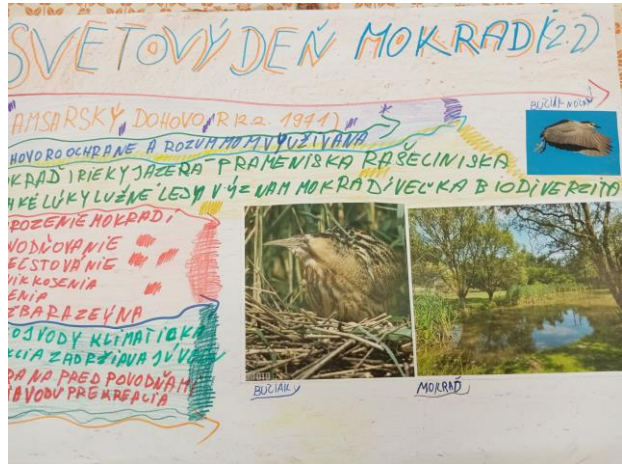 SVETOVÝ DEŇ MOKRADÍ (2.2)
AMSARSKÝ DOHOVOR R.K.2.a. 1971)
BUČIAK NOČNÝ
HOVOR O OCHRANE A ROZUMNOM VYUŽÍVANÍ
KRAĎ RIEKY JAZERÁ PRAMENISKÁ RAŠELINISKÁ
HKÉ LÚKY LUŽNÉ LESY VÝZNAM MOKRADÍ VEĽKÁ BIODIVERZITA
ROZENIE MOKRADÍ
VODŇOVANIE
EČSTOVANIE
KOSENIA
ENIA
OJ VODY KLIMATICKÁ
KCIA ZADRŽIAVAJÚ VODU
RANA PRED POVODŇAMI
VODU PRE
BUČIAK
MOKRAĎ